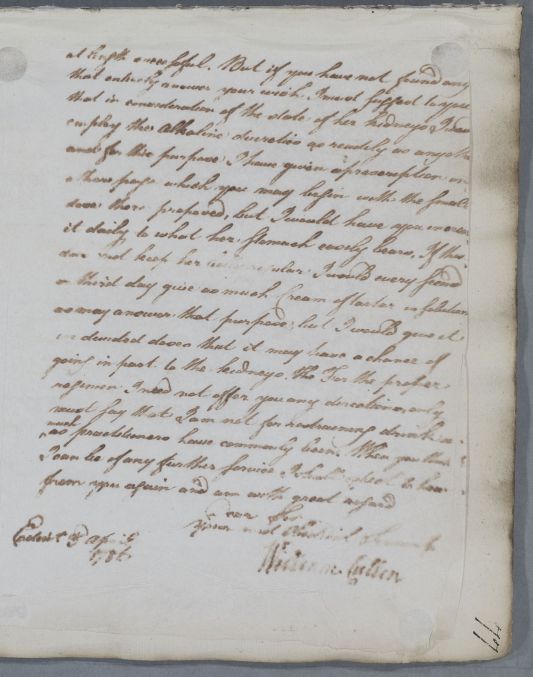 at length successful. But if you have not found any
that entirely answer your wish. I must suggest to you
that in consideration of the state of her kidneys I
employ the Alkaline diuretics as readily as any
and for this purpose I have given a prescription
a there page which you may begin with the small
doses there proposed, but I would have you increase
it daily to what her stomach easily bears. If this
does not keep her belly regular I would every second
or third day give as much Cream of tartar in solution
as may answer that purpose, but I would give it
in divided doses that it may have a chance of
going in part to the kidneys. For the proper
regimen I need not offer you any directions only
must say that I am not for restraining drink
much
as practitioners have commonly been. When you think
I can be of any further service I shall expect to hear
from you again and am with great regard
Dear Sir
Your most Obedient Servant
Edinr April
1786
William Cullen